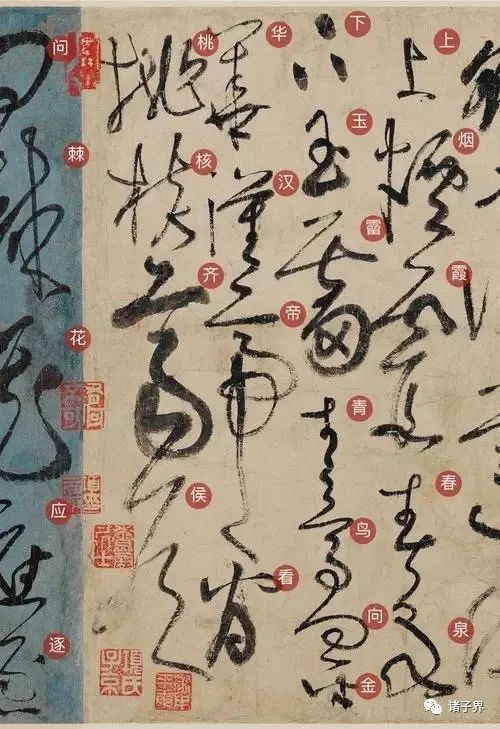 上烟霞春泉
下玉雷青鸟向金
华汉帝看
桃核齐侯
问棘花应逐
诸子界